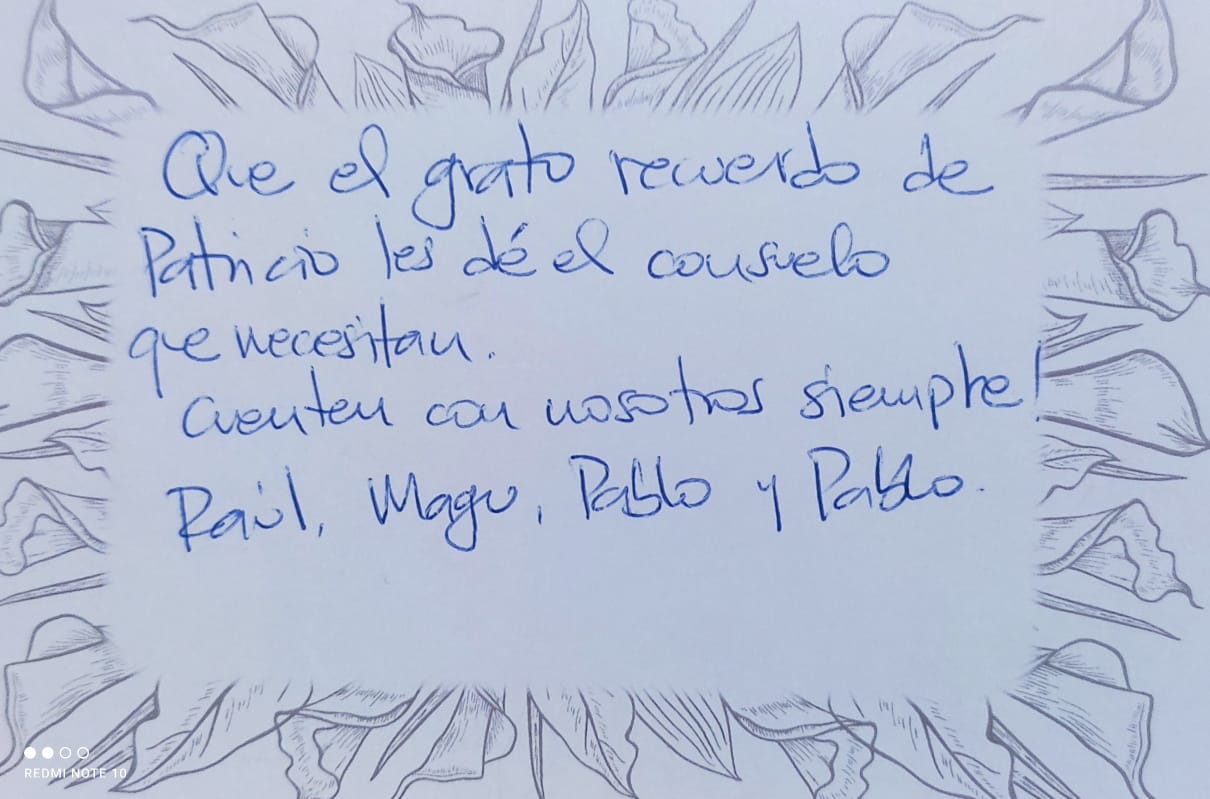 Que el grato recuerdo de
Patricio les dé el consuelo
que necesitan.
Cuenten con nosotros siempre!
Raúl, Magu, Pablo y Pablo.
REDMI NOTE 10